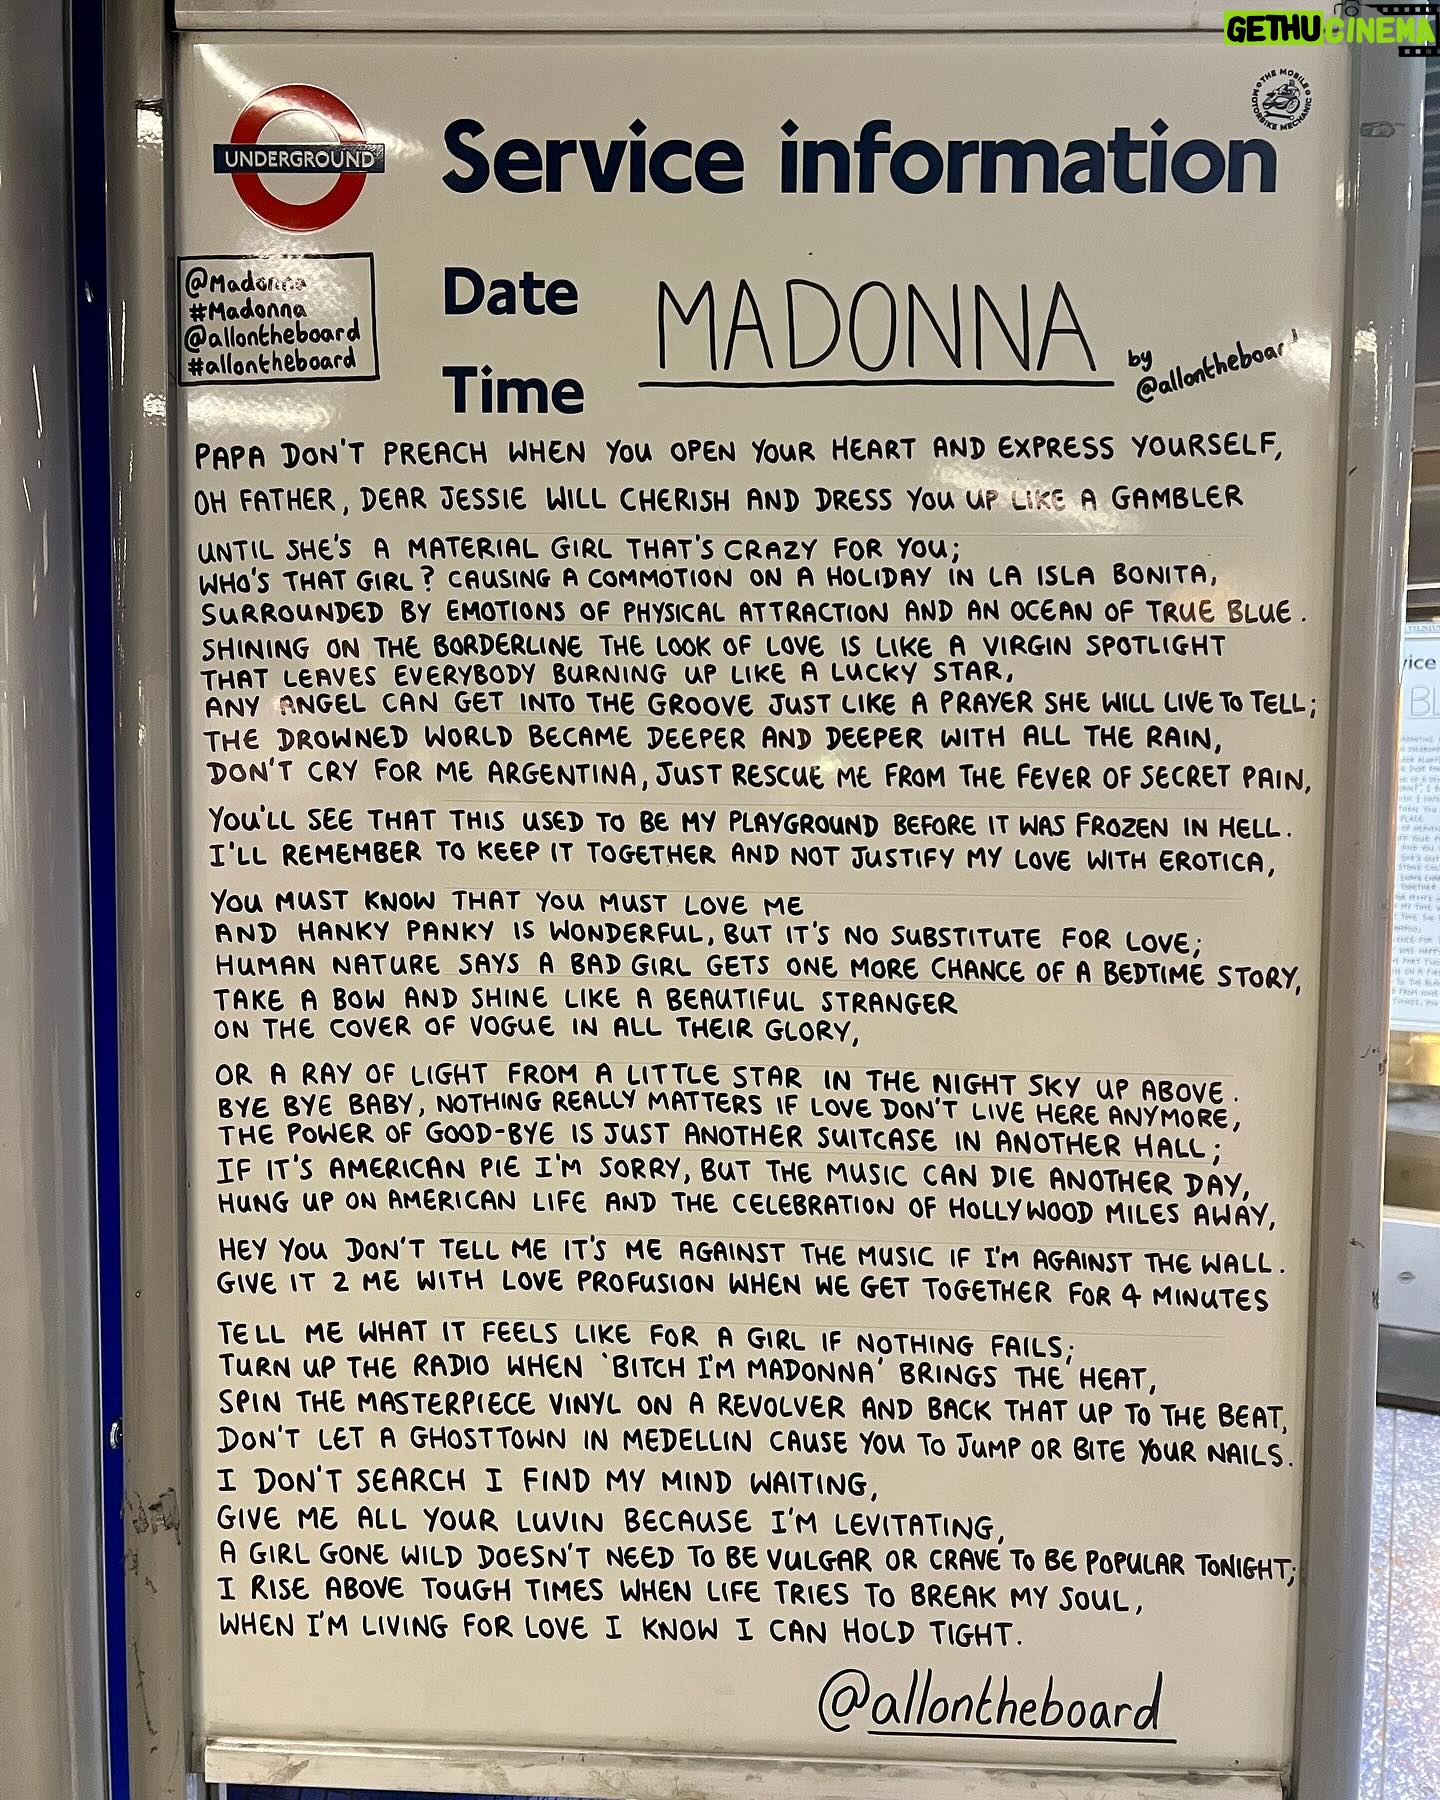 GETHUCINEMA
THE MOBILE MOTORBIKE MECHANIC
UNDERGROUND
Service information
@Madonna
#Madonna
@allontheboard
#allontheboard
Date
Time
MADONNA
by
@allontheboard
PAPA DON'T PREACH WHEN YOU OPEN YOUR HEART AND EXPRESS YOURSELF,
OH FATHER, DEAR JESSIE WILL CHERISH AND DRESS YOU UP LIKE A GAMBLER
UNTIL SHE'S A MATERIAL GIRL THAT'S CRAZY FOR YOU;
WHO'S THAT GIRL? CAUSING A COMMOTION ON A HOLIDAY IN LA ISLA BONITA,
SURROUNDED BY EMOTIONS OF PHYSICAL ATTRACTION AND AN OCEAN OF TRUE BLUE.
SHINING ON THE BORDERLINE THE LOOK OF LOVE IS LIKE A VIRGIN SPOTLIGHT
THAT LEAVES EVERYBODY BURNING UP LIKE A LUCKY STAR,
ANY ANGEL CAN GET INTO THE GROOVE JUST LIKE A PRAYER SHE WILL LIVE TO TELL;
THE DROWNED WORLD BECAME DEEPER AND DEEPER WITH ALL THE RAIN,
DON'T CRY FOR ME ARGENTINA, JUST RESCUE ME FROM THE FEVER OF SECRET PAIN,
YOU'LL SEE THAT THIS USED TO BE MY PLAYGROUND BEFORE IT WAS FROZEN IN HELL.
I'LL REMEMBER TO KEEP IT TOGETHER AND NOT JUSTIFY MY LOVE WITH EROTICA,
YOU MUST KNOW THAT YOU MUST LOVE ME
AND HANKY PANKY IS WONDERFUL, BUT IT'S NO SUBSTITUTE FOR LOVE;
HUMAN NATURE SAYS A BAD GIRL GETS ONE MORE CHANCE OF A BEDTIME STORY,
TAKE A BOW AND SHINE LIKE A BEAUTIFUL STRANGER
ON THE COVER OF VOGUE IN ALL THEIR GLORY,
OR A RAY OF LIGHT FROM A LITTLE STAR IN THE NIGHT SKY UP ABOVE.
BYE BYE BABY, NOTHING REALLY MATTERS IF LOVE DON'T LIVE HERE ANYMORE,
THE POWER OF GOOD-BYE IS JUST ANOTHER SUITCASE IN ANOTHER HALL;
IF IT'S AMERICAN PIE I'M SORRY, BUT THE MUSIC CAN DIE ANOTHER DAY,
HUNG UP ON AMERICAN LIFE AND THE CELEBRATION OF HOLLYWOOD MILES AWAY,
HEY YOU DON'T TELL ME IT'S ME AGAINST THE MUSIC IF I'M AGAINST THE WALL.
GIVE IT 2 ME WITH LOVE PROFUSION WHEN WE GET TOGETHER FOR 4 MINUTES
TELL ME WHAT IT FEELS LIKE FOR A GIRL IF NOTHING FAILS;
TURN UP THE RADIO WHEN 'BITCH I'M MADONNA' BRINGS THE HEAT,
SPIN THE MASTERPIECE VINYL ON A REVOLVER AND BACK THAT UP TO THE BEAT,
DON'T LET A GHOSTTOWN IN MEDELLIN CAUSE YOU TO JUMP OR BITE YOUR NAILS.
I DON'T SEARCH I FIND MY MIND WAITING,
GIVE ME ALL YOUR LUVIN BECAUSE I'M LEVITATING,
A GIRL GONE WILD DOESN'T NEED TO BE VULGAR OR CRAVE TO BE POPULAR TONIGHT;
I RISE ABOVE TOUGH TIMES WHEN LIFE TRIES TO BREAK MY SOUL,
WHEN I'M LIVING FOR LOVE I KNOW I CAN HOLD TIGHT.
@allontheboard